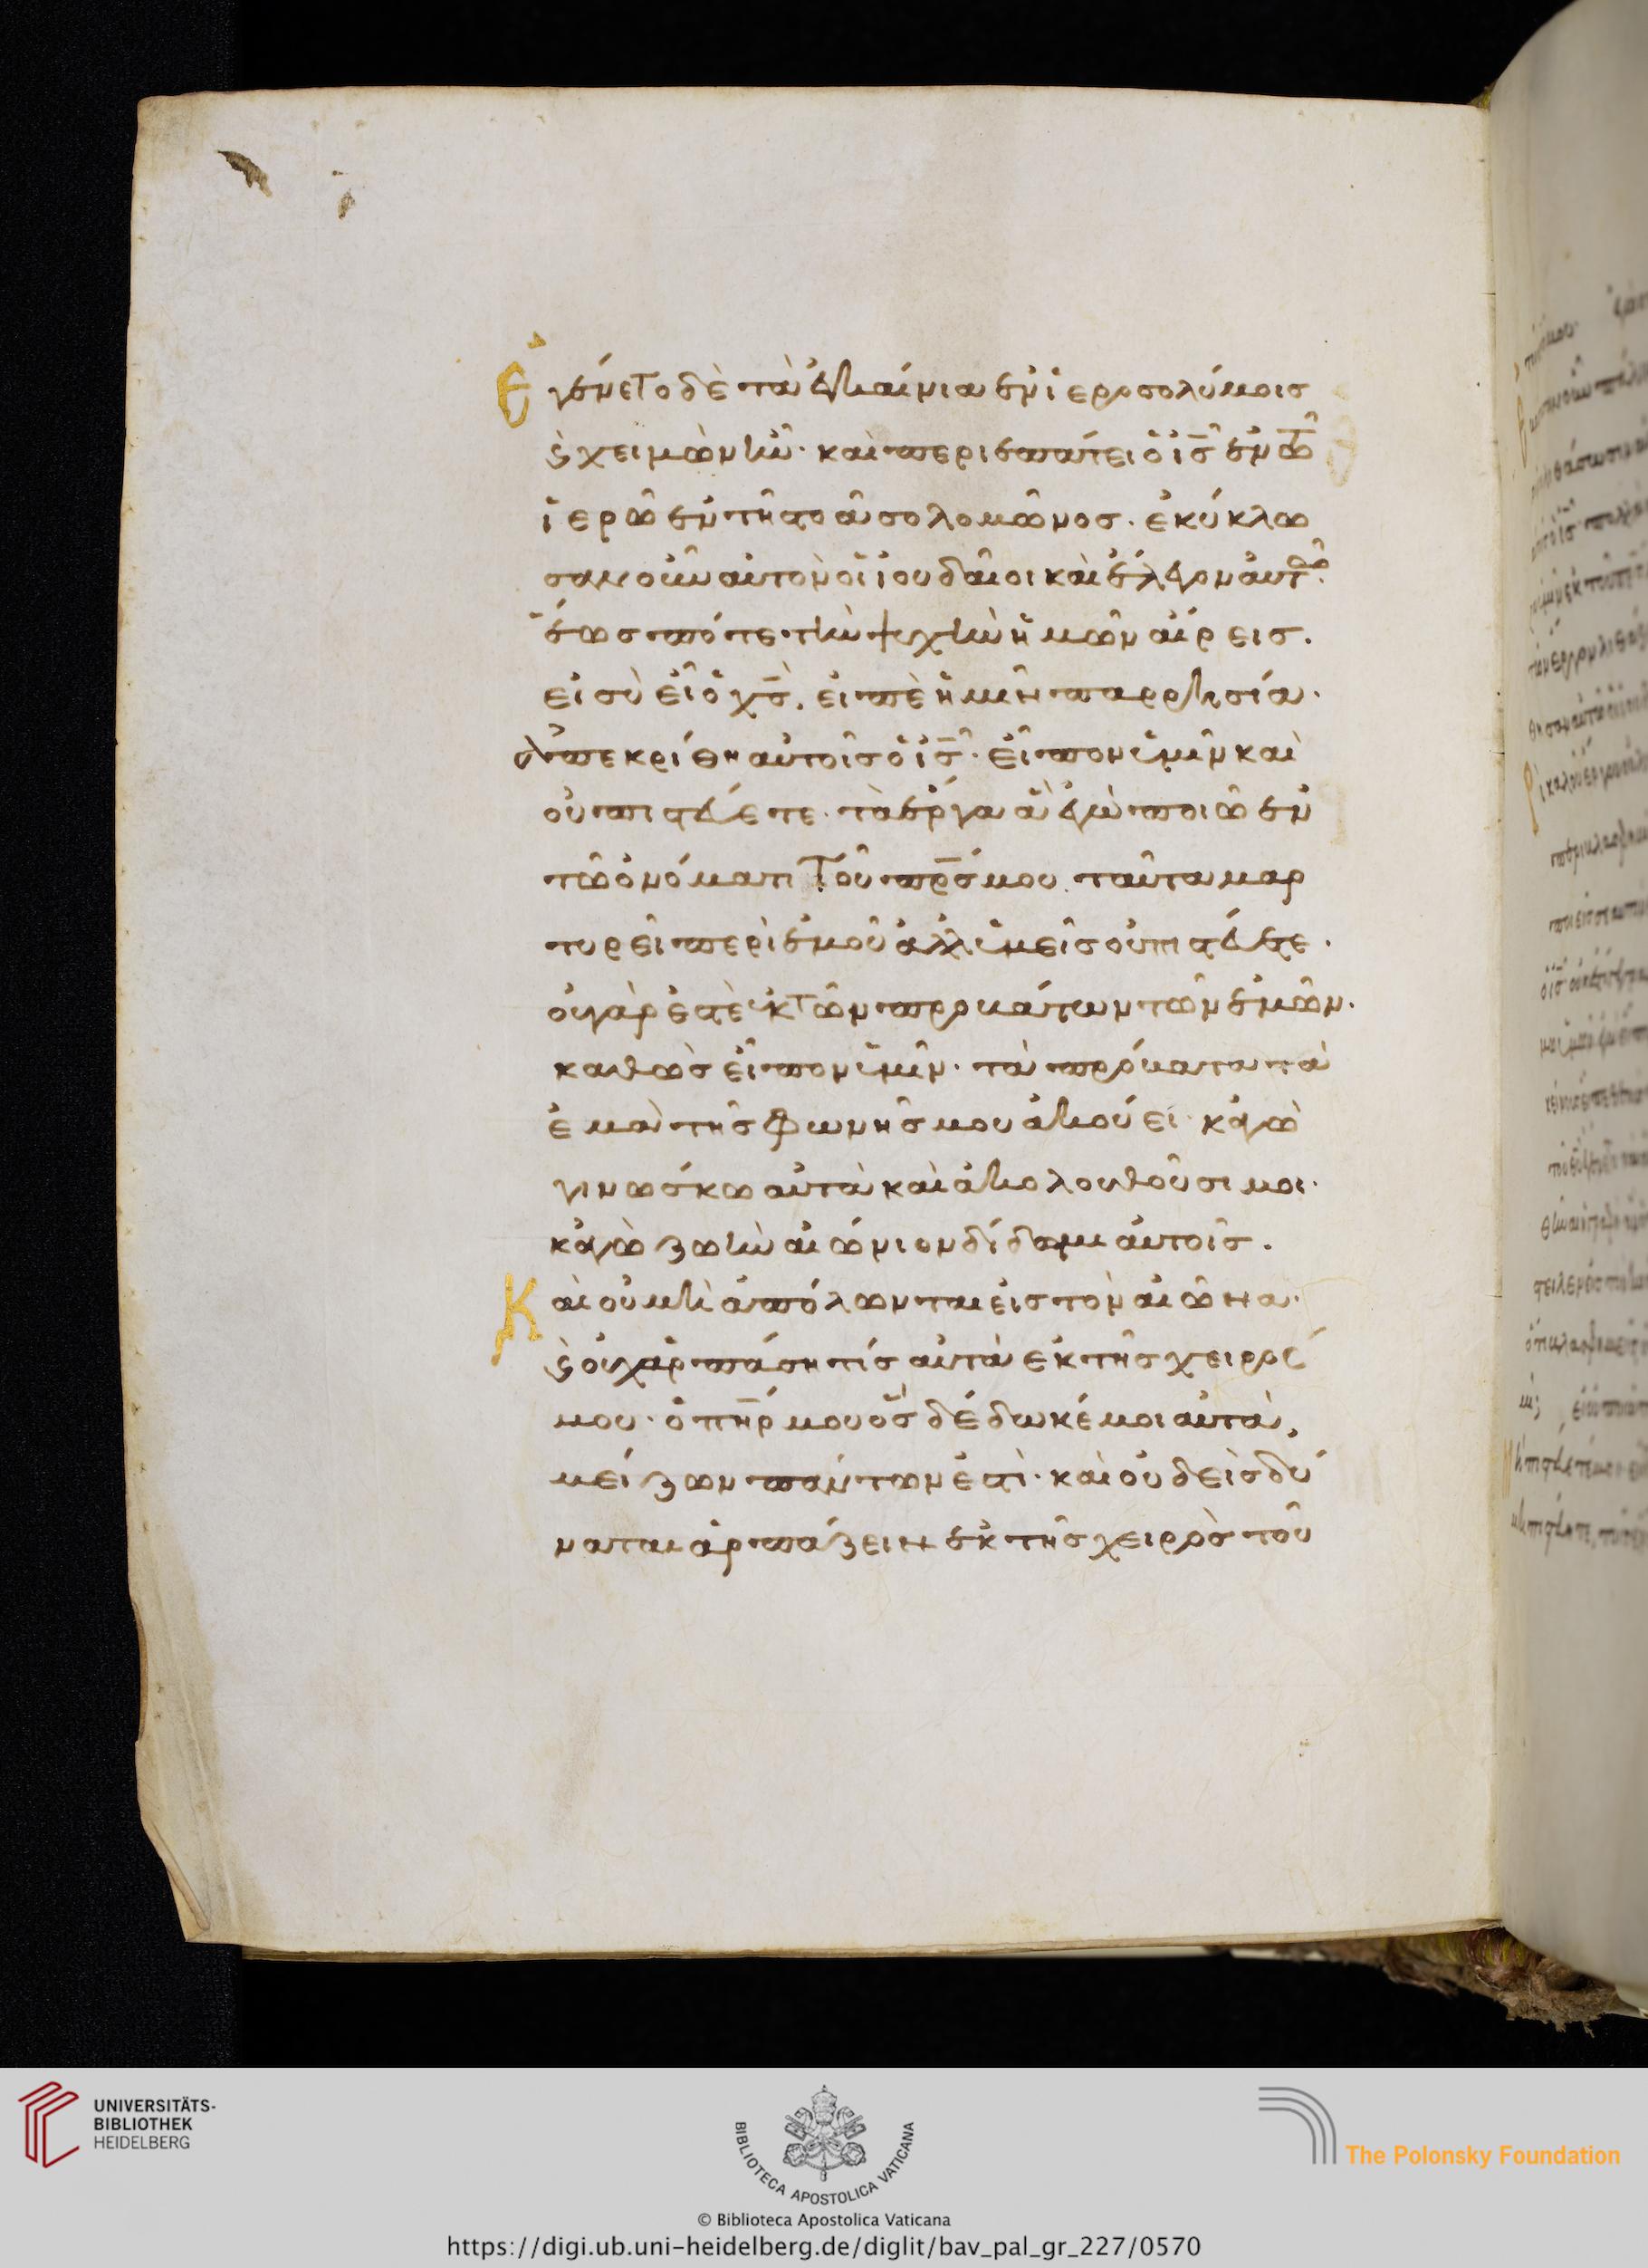 Ἐγένετο δὲ τὰ ἐγκαίνια ἐν ἱεροσολύμοισ
ϗ χειμὼν ἦν· καὶ περιεπάτει ὁ ι̅σ̅ ἐν τῶ
ἱερῶ ἐν τῆ στοᾶ σολομῶνοσ. ἐκύκλω
σαν οὖν αὐτὸν οἱ ἰουδαῖοι καὶ ἔλεγον αὐτῶ.
ἕωσ πότε τὴν ψυχὴν ἡμῶν αἴρεισ.
εἰ σὺ εἶ ὁ χ̅σ̅, εἰπὲ ἡμῖν παρρησία.
ἀπεκρίθη αὐτοῖσ ὁ ι̅σ̅· εἶπον ὑμῖν καὶ
οὐ πιστεύετε· τὰ ἔργα ἃ ἐγὼ ποιῶ ἐν
τῶ ὀνόματι τοῦ π̅ρ̅σ̅ μου. ταῦτα μαρ
τυρεῖ περὶ ἐμοῦ ἀλλ ὑμεῖσ οὐ πιστεύετε.
οὐ γάρ ἐστὲ ἐκ τῶν προβάτων τῶν ἐμῶν.
καθὼσ εἶπον ὑμῖν· τὰ πρόβατα τὰ
ἐμὰ τῆσ φωνῆσ μου ἀκούει· κἀγὼ
γινώσκω αὐτὰ καὶ ἀκολουθοῦσι μοι·
κἀγὼ ζωὴν αἰώνιον δίδωμι αὐτοῖσ.
Καὶ οὐ μὴ ἀπόλωνται εἰσ τὸν αἰῶνα·
ϗ οὐχ ἁρπάση τίσ αὐτὰ ἐκ τῆσ χειρός
μου· ὁ π̅η̅ρ̅ μου ὃσ δέδωκέ μοι αὐτὰ,
μείζων πάντων ἐστὶ· καὶ οὐδεὶσ δύ
ναται ἁρπάζειν ἐκ τῆσ χειρὸσ τοῦ
UNIVERSITÄTS-
BIBLIOTHEK
HEIDELBERG
BIBLIOTECA APOSTOLICA VATICANA
The Polonsky Foundation
© Biblioteca Apostolica Vaticana
https://digi.ub.uni-heidelberg.de/diglit/bav_pal_gr_227/0570